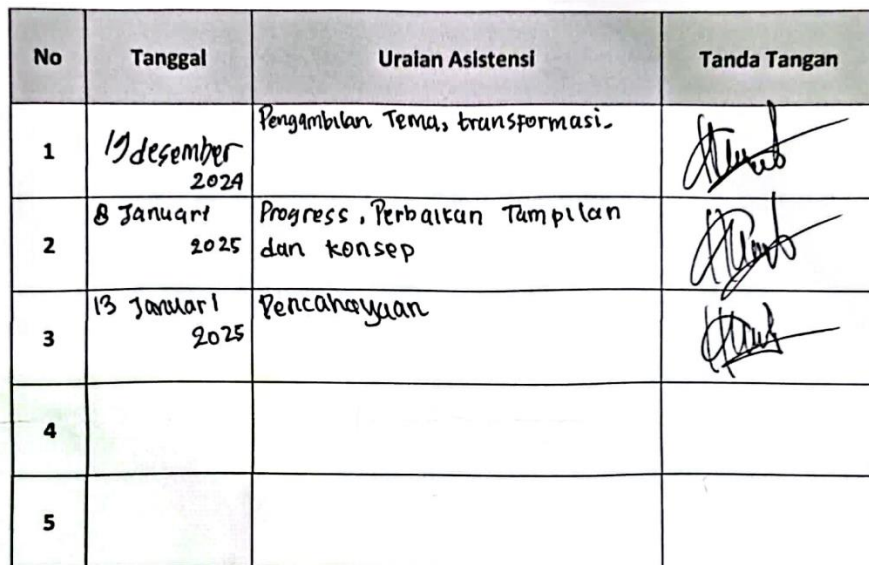 No Tanggal Uraian Asistensi Tanda Tangan
1 19 desember 2024 Pengambilan Tema, transformasi.
2 8 Januari 2025 Progress, Perbaikan Tampilan
dan konsep
3 13 Januari 2025 Pencahayaan
4
5